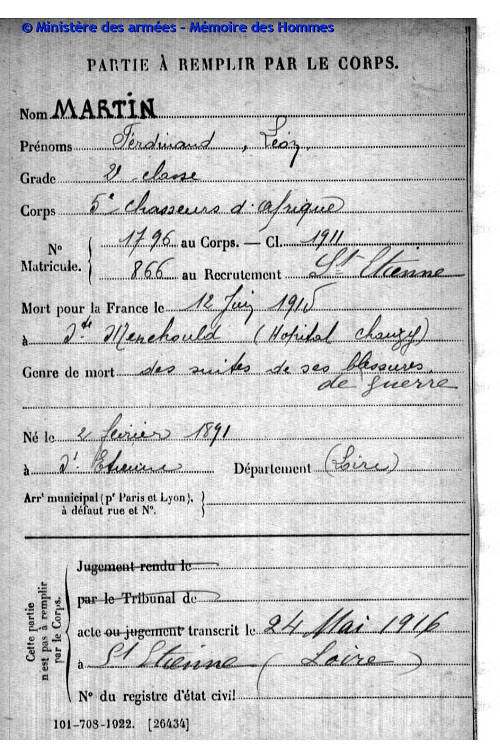 © Ministère des armées - Mémoire des Hommes
PARTIE À REMPLIR PAR LE CORPS.
Nom MARTIN
Prénoms Ferdinand, Léon
Grade 2e classe
Corps 5e chasseurs d'afrique
N° Matricule. { 1796 au Corps. — Cl. 1911
866 au Recrutement St Etienne
Mort pour la France le 12 Juin 1915
à Ste Menehould (Hopital chanzy)
Genre de mort des suites de ses blessures
de guerre
Né le 2 février 1891
à St Etienne Département (Loire)
Arrt municipal (pr Paris et Lyon), à défaut rue et N°. }
Cette partie n'est pas à remplir par le Corps.
Jugement rendu le
par le Tribunal de
acte ou jugement transcrit le 24 Mai 1916
à St Etienne (Loire)
N° du registre d'état civil
101-708-1922. [26434]